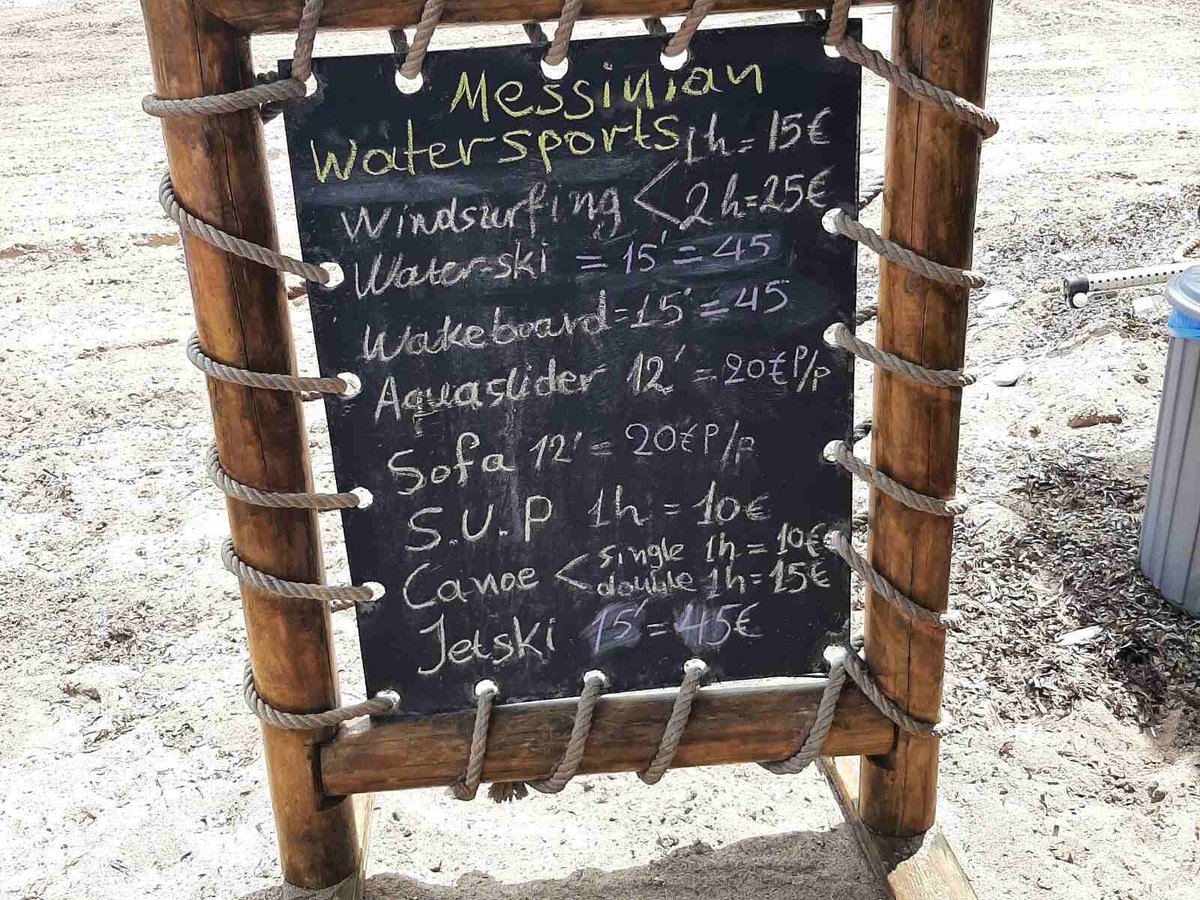 Messinian
Watersports
Windsurfing < 1h = 15€
2h=25€
Water-ski = 15' = 45
Wakeboard=15' = 45
Aquaslider 12' = 20€ P/p
Sofa 12' = 20€ P/p
S.U.P 1h = 10€
Canoe < single 1h = 10€
double 1h = 15€
Jetski 15' = 45€